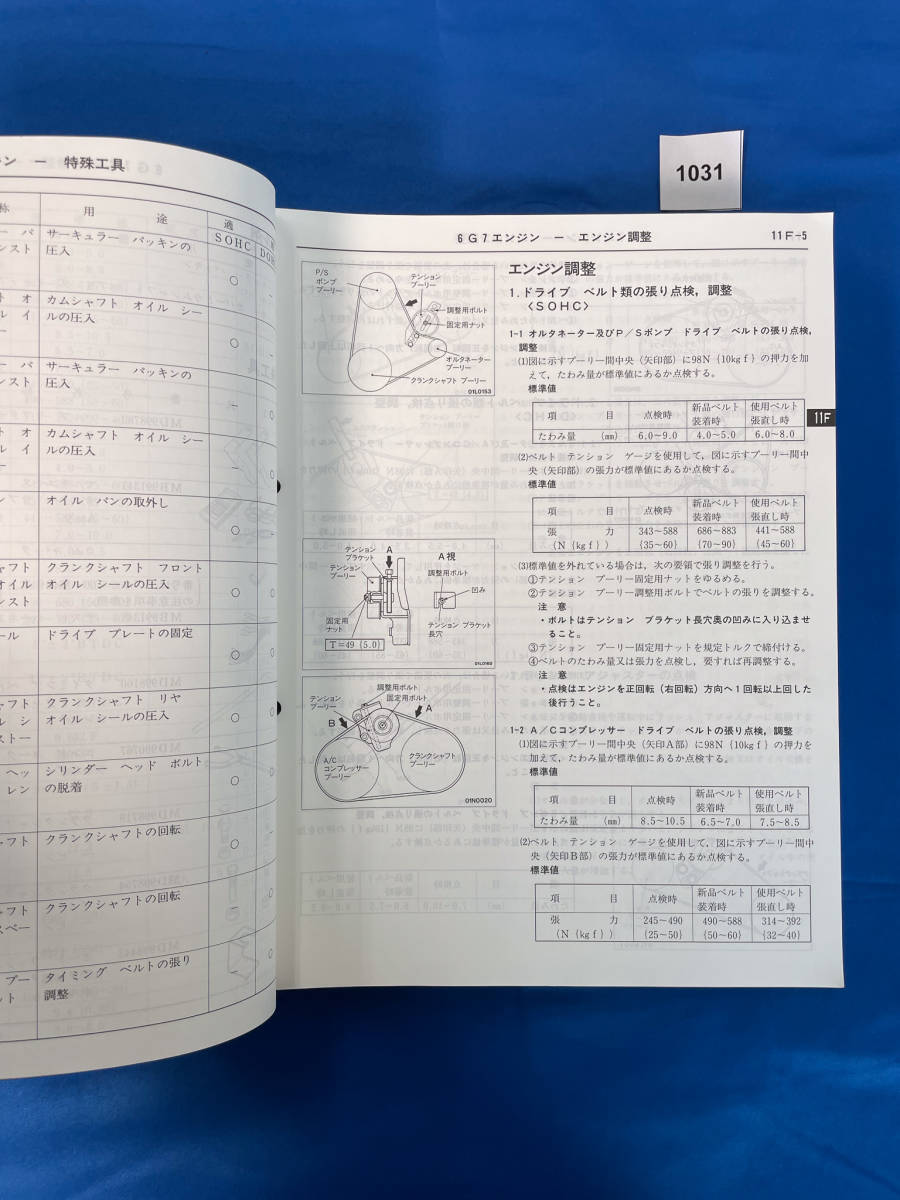 1031
ン ー 特殊工具
称 用 途 適
SOHC DOH
サーキュラー パッキンの
圧入
カムシャフト オイル シー
ルの圧入
サーキュラー パッキンの
圧入
カムシャフト オイル シー
ルの圧入
オイル パンの取外し
クランクシャフト フロント
オイル シールの圧入
ドライブ プレートの固定
クランクシャフト リヤ
オイル シールの圧入
シリンダー ヘッド ボルト
の脱着
クランクシャフトの回転
クランクシャフトの回転
タイミング ベルトの張り
調整
6G7エンジン ー エンジン調整 11F-5
11F
P/S
ポンプ
プーリー
テンション
プーリー
調整用ボルト
固定用ナット
オルタネーター
プーリー
クランクシャフト プーリー
01L0153
エンジン調整
1. ドライブ ベルト類の張り点検, 調整
〈SOHC〉
1-1 オルタネーター及びP/Sポンプ ドライブ ベルトの張り点検,
調整
(1)図に示すプーリー間中央(矢印部)に98N{10kgf}の押力を加
えて, たわみ量が標準値にあるか点検する。
標準値
項 目 点検時 新品ベルト装着時 使用ベルト張直し時
たわみ量 (mm) 6.0~9.0 4.0~5.0 6.0~8.0
(2)ベルト テンション ゲージを使用して, 図に示すプーリー間中
央(矢印部)の張力が標準値にあるか点検する。
標準値
項 目 点検時 新品ベルト装着時 使用ベルト張直し時
張 力 343~588 686~883 441~588
(N{kgf}) {35~60} {70~90} {45~60}
テンション
ブラケット
A
A視
テンション
プーリー
調整用ボルト
凹み
固定用
ナット
テンション ブラケット
長穴
T=49{5.0}
01L0160
(3)標準値を外れている場合は, 次の要領で張り調整を行う。
①テンション プーリー固定用ナットをゆるめる。
②テンション プーリー調整用ボルトでベルトの張りを調整する。
注 意
・ボルトはテンション ブラケット長穴奥の凹みに入り込ませ
ること。
③テンション プーリー固定用ナットを規定トルクで締付ける。
④ベルトのたわみ量又は張力を点検し, 要すれば再調整する。
注 意
・点検はエンジンを正回転(右回転)方向へ1回転以上回した
後行うこと。
テンション
プーリー
調整用ボルト
固定用ボルト
A
B
A/C
コンプレッサー
プーリー
クランクシャフト
プーリー
01N0020
1-2 A/Cコンプレッサー ドライブ ベルトの張り点検, 調整
(1)図に示すプーリー間中央(矢印A部)に98N{10kgf}の押力を
加えて, たわみ量が標準値にあるか点検する。
標準値
項 目 点検時 新品ベルト装着時 使用ベルト張直し時
たわみ量 (mm) 8.5~10.5 6.5~7.0 7.5~8.5
(2)ベルト テンション ゲージを使用して, 図に示すプーリー間中
央(矢印B部)の張力が標準値にあるか点検する。
標準値
項 目 点検時 新品ベルト装着時 使用ベルト張直し時
張 力 245~490 490~588 314~392
(N{kgf}) {25~50} {50~60} {32~40}